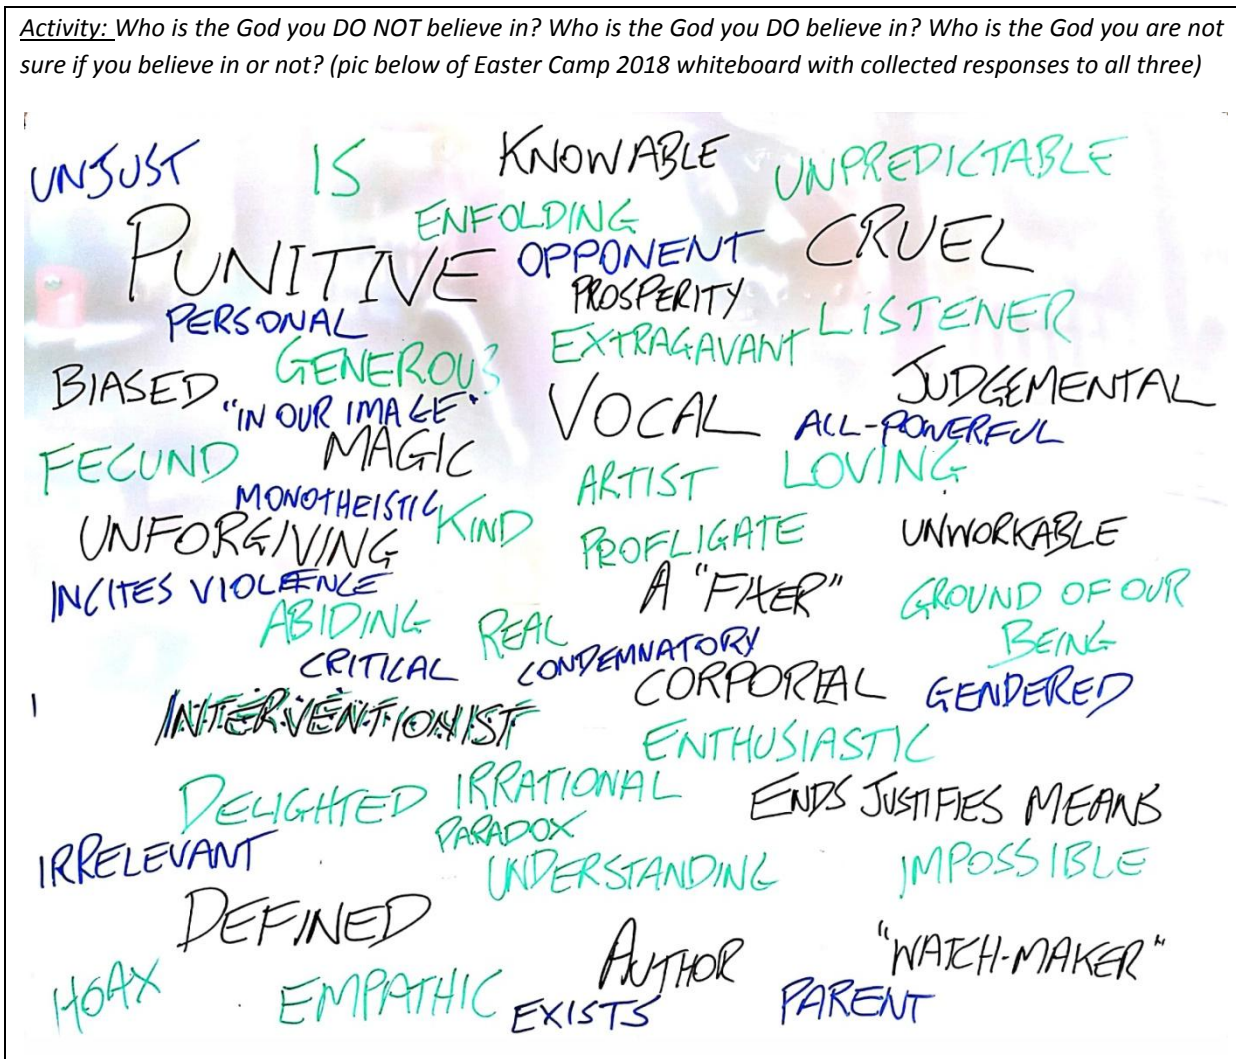 Activity: Who is the God you DO NOT believe in? Who is the God you DO believe in? Who is the God you are not
sure if you believe in or not? (pic below of Easter Camp 2018 whiteboard with collected responses to all three)
UNJUST IS KNOWABLE UNPREDICTABLE
ENFOLDING
PUNITIVE OPPONENT CRUEL
PROSPERITY
PERSONAL LISTENER
GENEROUS EXTRAGAVANT
BIASED JUDGEMENTAL
"IN OUR IMAGE" VOCAL ALL-POWERFUL
FECUND MAGIC ARTIST LOVING
MONOTHEISTIC KIND
UNFORGIVING PROFLIGATE UNWORKABLE
INCITES VIOLENCE A "FIXER" GROUND OF OUR
ABIDING REAL BEING
CRITICAL CONDEMNATORY
CORPOREAL GENDERED
INTERVENTIONIST
ENTHUSIASTIC
DELIGHTED IRRATIONAL ENDS JUSTIFIES MEANS
PARADOX
IRRELEVANT UNDERSTANDING IMPOSSIBLE
DEFINED
AUTHOR "WATCH-MAKER"
HOAX EMPATHIC EXISTS PARENT